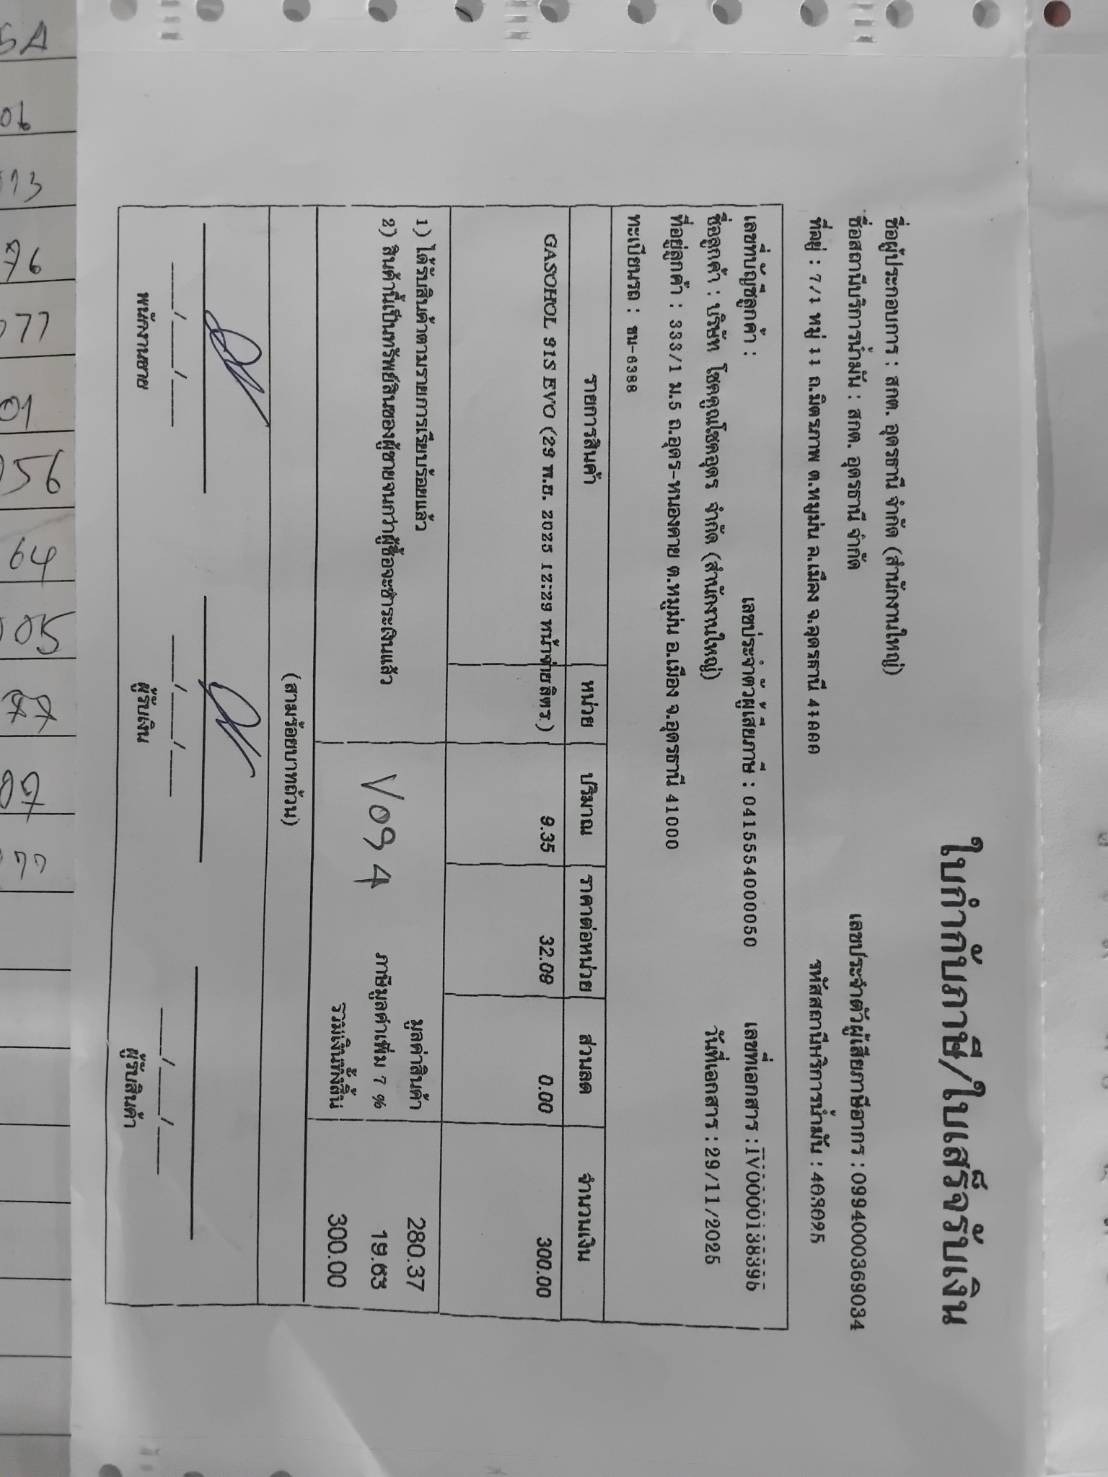 ใบกำกับภาษี/ใบเสร็จรับเงิน
ชื่อผู้ประกอบการ : สกต. อุดรธานี จำกัด (สำนักงานใหญ่) เลขประจำตัวผู้เสียภาษีอากร : 0994000369034
ชื่อสถานีบริการน้ำมัน : สกต. อุดรธานี จำกัด รหัสสถานีบริการน้ำมัน :
ที่อยู่ : 7/1 หมู่ 11 ถ.มิตรภาพ ต.หมูม่น อ.เมือง จ.อุดรธานี 41000
เลขที่บัญชีลูกค้า : เลขประจำตัวผู้เสียภาษี : 0415554000050 เลขที่เอกสาร : IV0000138396
ชื่อลูกค้า : บริษัท โชคคูณโชคอุดร จำกัด (สำนักงานใหญ่) วันที่เอกสาร : 29/11/2025
ที่อยู่ลูกค้า : 333/1 ม.5 ถ.อุดร-หนองคาย ต.หมูม่น อ.เมือง จ.อุดรธานี 41000
ทะเบียนรถ : ขน-6388
รายการสินค้า หน่วย ปริมาณ ราคาต่อหน่วย ส่วนลด จำนวนเงิน
GASOHOL 91S EVO (29 พ.ย. 2025 12:29 หน้าจ่าย ลิตร) 9.35 32.08 0.00 300.00
1) ได้รับสินค้าตามรายการเรียบร้อยแล้ว มูลค่าสินค้า 280.37
2) สินค้านี้เป็นทรัพย์สินของผู้ขายจนกว่าผู้ซื้อจะชำระเงินแล้ว ภาษีมูลค่าเพิ่ม 7 % 19.63
V094
รวมเงินทั้งสิ้น 300.00
(สามร้อยบาทถ้วน)
___/___/___ ___/___/___ ___/___/___
พนักงานขาย ผู้รับเงิน ผู้รับสินค้า